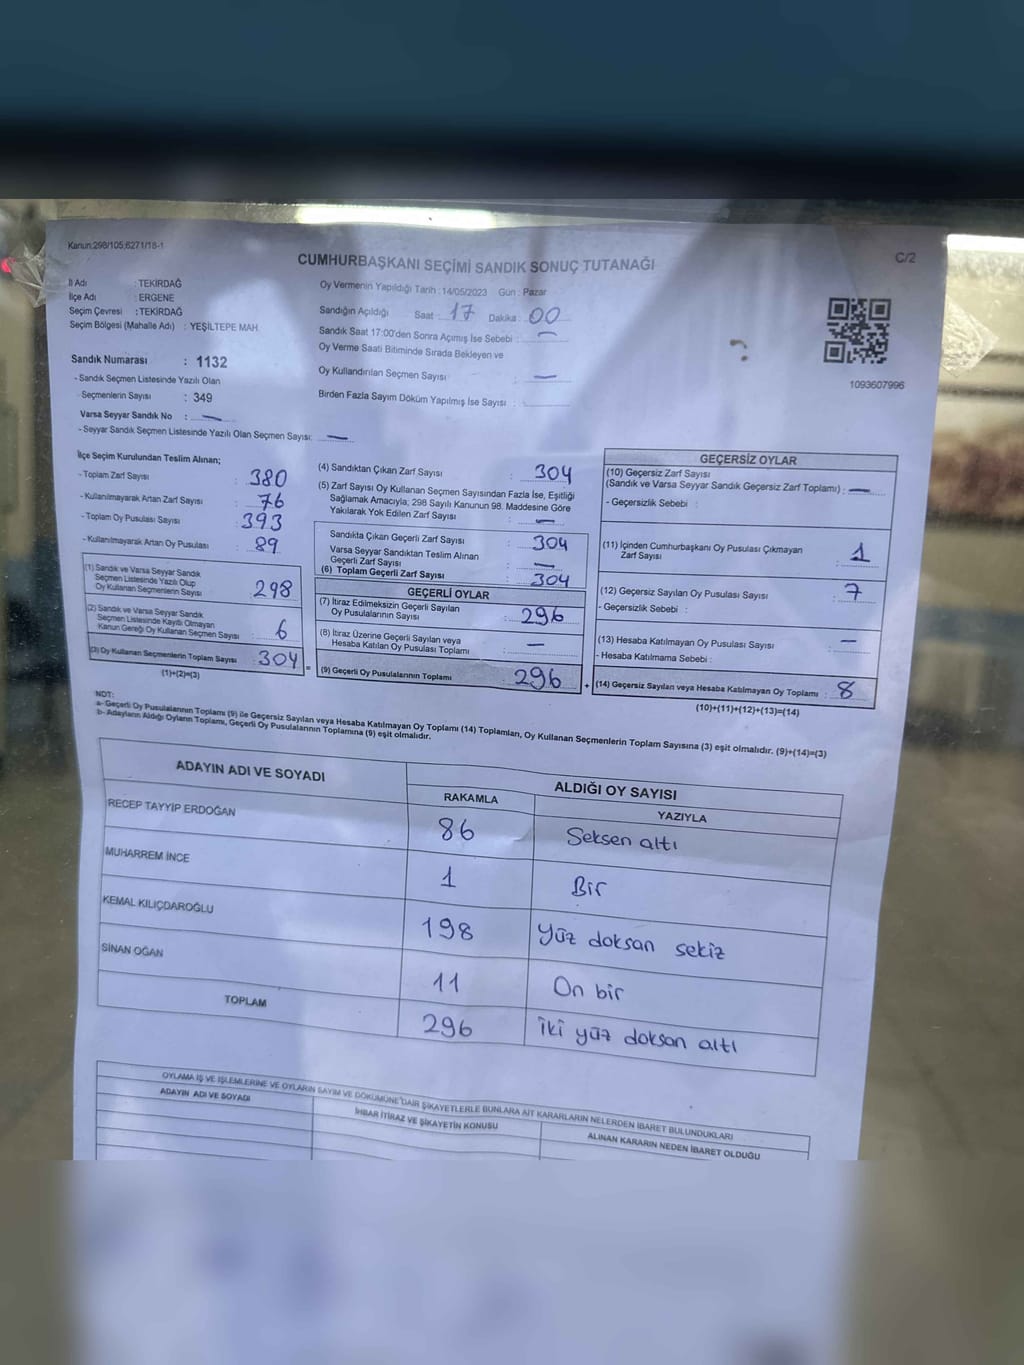 Kanun:298/105;6271/18-1
C/2
CUMHURBAŞKANI SEÇİMİ SANDIK SONUÇ TUTANAĞI
İl Adı : TEKİRDAĞ
İlçe Adı : ERGENE
Seçim Çevresi : TEKİRDAĞ
Seçim Bölgesi (Mahalle Adı) : YEŞİLTEPE MAH.
Sandık Numarası : 1132
- Sandık Seçmen Listesinde Yazılı Olan
Seçmenlerin Sayısı : 349
Varsa Seyyar Sandık No : —
- Seyyar Sandık Seçmen Listesinde Yazılı Olan Seçmen Sayısı: —
Oy Vermenin Yapıldığı Tarih : 14/05/2023 Gün : Pazar
Sandığın Açıldığı Saat : 17 Dakika : 00
Sandık Saat 17:00'den Sonra Açımış İse Sebebi : —
Oy Verme Saati Bitiminde Sırada Bekleyen ve
Oy Kullandırılan Seçmen Sayısı : —
Birden Fazla Sayım Döküm Yapılmış İse Sayısı :
1093607996
İlçe Seçim Kurulundan Teslim Alınan;
- Toplam Zarf Sayısı : 380
- Kullanılmayarak Artan Zarf Sayısı : 76
- Toplam Oy Pusulası Sayısı : 393
- Kullanılmayarak Artan Oy Pusulası : 89
(1) Sandık ve Varsa Seyyar Sandık
Seçmen Listesinde Yazılı Olup
Oy Kullanan Seçmenlerin Sayısı : 298
(2) Sandık ve Varsa Seyyar Sandık
Seçmen Listesinde Kayıtlı Olmayan
Kanun Gereği Oy Kullanan Seçmen Sayısı : 6
(3) Oy Kullanan Seçmenlerin Toplam Sayısı : 304
(1)+(2)=(3)
(4) Sandıktan Çıkan Zarf Sayısı : 304
(5) Zarf Sayısı Oy Kullanan Seçmen Sayısından Fazla İse, Eşitliği
Sağlamak Amacıyla; 298 Sayılı Kanunun 98. Maddesine Göre
Yakılarak Yok Edilen Zarf Sayısı : —
Sandıkta Çıkan Geçerli Zarf Sayısı : 304
Varsa Seyyar Sandıktan Teslim Alınan
Geçerli Zarf Sayısı : —
(6) Toplam Geçerli Zarf Sayısı : 304
GEÇERLİ OYLAR
(7) İtiraz Edilmeksizin Geçerli Sayılan
Oy Pusulalarının Sayısı : 296
(8) İtiraz Üzerine Geçerli Sayılan veya
Hesaba Katılan Oy Pusulası Toplamı : —
= (9) Geçerli Oy Pusulalarının Toplamı : 296
GEÇERSİZ OYLAR
(10) Geçersiz Zarf Sayısı
(Sandık ve Varsa Seyyar Sandık Geçersiz Zarf Toplamı) : —
- Geçersizlik Sebebi :
(11) İçinden Cumhurbaşkanı Oy Pusulası Çıkmayan
Zarf Sayısı : 1
(12) Geçersiz Sayılan Oy Pusulası Sayısı : 7
- Geçersizlik Sebebi :
(13) Hesaba Katılmayan Oy Pusulası Sayısı : —
- Hesaba Katılmama Sebebi :
+ (14) Geçersiz Sayılan veya Hesaba Katılmayan Oy Toplamı : 8
(10)+(11)+(12)+(13)=(14)
NOT:
a- Geçerli Oy Pusulalarının Toplamı (9) ile Geçersiz Sayılan veya Hesaba Katılmayan Oy Toplamı (14) Toplamları, Oy Kullanan Seçmenlerin Toplam Sayısına (3) eşit olmalıdır. (9)+(14)=(3)
b- Adayların Aldığı Oyların Toplamı, Geçerli Oy Pusulalarının Toplamına (9) eşit olmalıdır.
ADAYIN ADI VE SOYADI ALDIĞI OY SAYISI
RAKAMLA YAZIYLA
RECEP TAYYİP ERDOĞAN 86 Seksen altı
MUHARREM İNCE 1 Bir
KEMAL KILIÇDAROĞLU 198 yüz doksan sekiz
SİNAN OĞAN 11 On bir
TOPLAM 296 iki yüz doksan altı
OYLAMA İŞ VE İŞLEMLERİNE VE OYLARIN SAYIM VE DÖKÜMÜNE DAİR ŞİKAYETLERLE BUNLARA AİT KARARLARIN NELERDEN İBARET BULUNDUKLARI
ADAYIN ADI VE SOYADI İHBAR İTİRAZ VE ŞİKAYETİN KONUSU ALINAN KARARIN NEDEN İBARET OLDUĞU